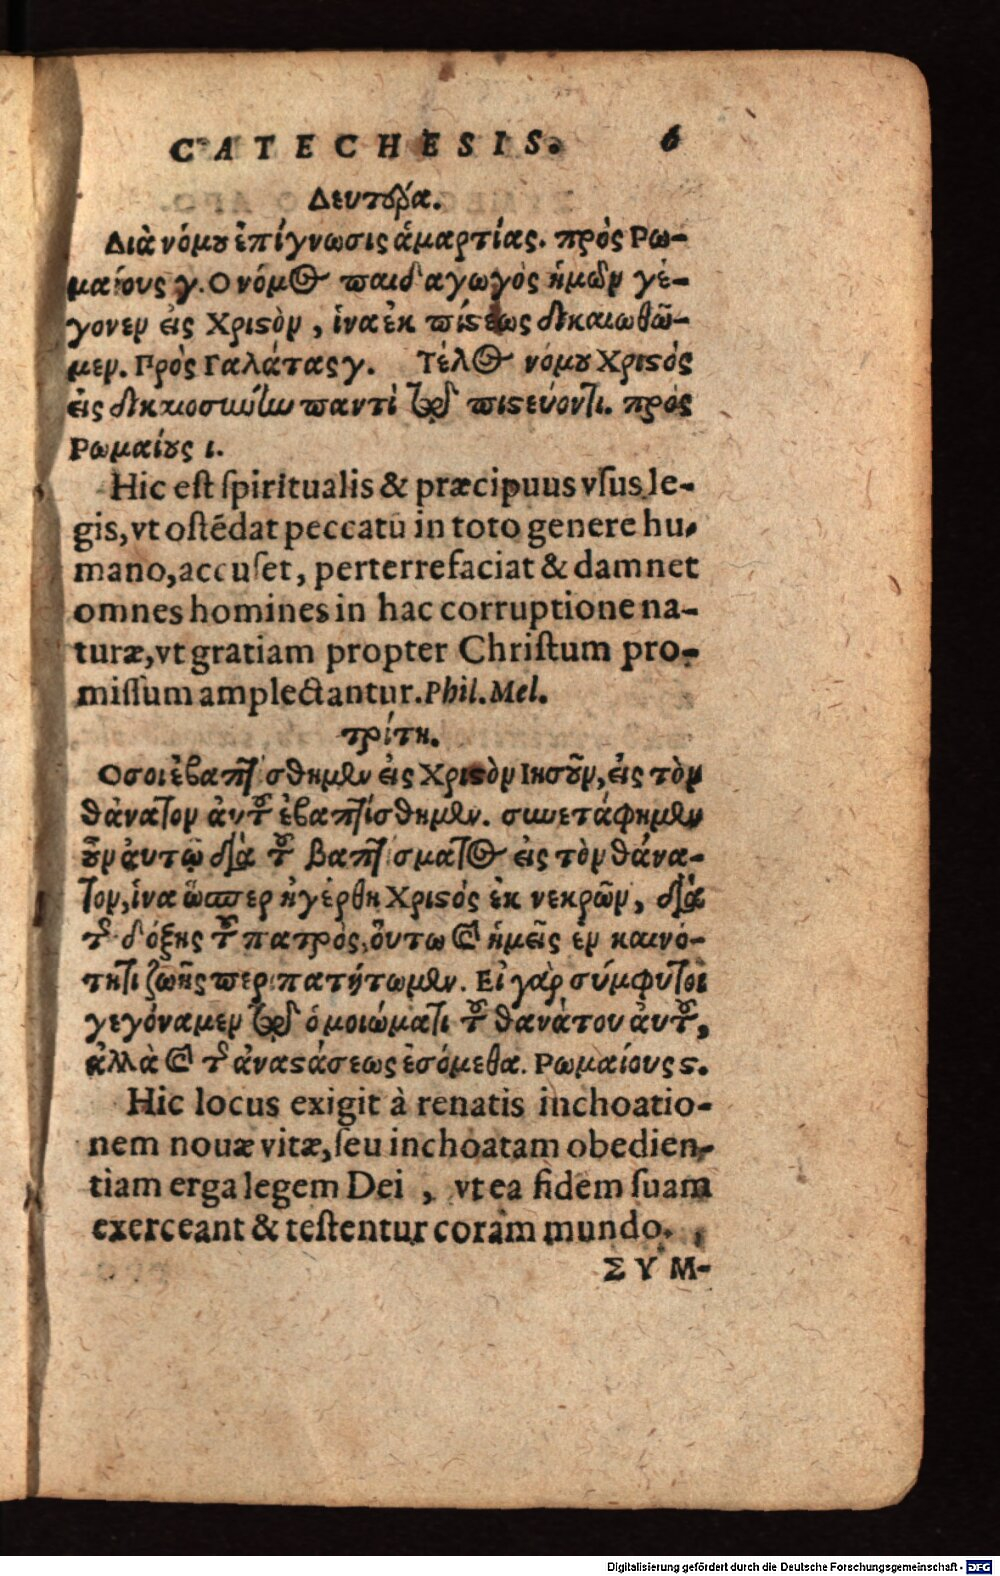 CATECHESIS. 6
Δευτέρα.
Διὰ νόμου ἐπίγνωσις ἁμαρτίας. πρὸς Ρω-
μαίους γ. Ο νόμος παιδαγωγὸς ἡμῶν γέ-
γονεν εἰς Χριστὸν, ἱνα ἐκ πίστεως δικαιωθῶ-
μεν. Πρὸς Γαλάτας γ. Τέλος νόμου Χριστὸς
εἰς δικαιοσύνην παντὶ τῷ πιστεύοντι. πρὸς
Ρωμαίους ι.
Hic est spiritualis & præcipuus vsus le-
gis, vt ostēdat peccatū in toto genere hu-
mano, accuset, perterrefaciat & damnet
omnes homines in hac corruptione na-
turæ, vt gratiam propter Christum pro-
missum amplectantur. Phil. Mel.
τρίτη.
Οσοι ἐβαπτίσθημεν εἰς Χριστὸν Ιησοῦν, εἰς τὸν
θάνατον ἀυτοῦ ἐβαπτίσθημεν. συνετάφημεν
οῦν ἀυτῶ διὰ τοῦ βαπτίσματος εἰς τὸν θάνα-
τον, ἱνα ὥσπερ ἠγέρθη Χριστός ἐκ νεκρῶν, διὰ
τῆς δόξης τοῦ πατρὸς, ὅυτω καὶ ἡμεῖς ἐν καινό-
τητι ζωῆς περιπατήτωμεν. Εἰ γὰρ σύμφυτοι
γεγόναμεν τῷ ὁμοιώματι τοῦ θανάτου ἀυτοῦ,
ἀλλὰ καὶ τῆς ἀναστάσεως ἐσόμεθα. Ρωμαίους ϛ.
Hic locus exigit à renatis inchoatio-
nem nouæ vitæ, seu inchoatam obedien-
tiam erga legem Dei, vt ea fidem suam
exerceant & testentur coram mundo.
ΣΥΜ-
Digitalisierung gefördert durch die Deutsche Forschungsgemeinschaft - DFG